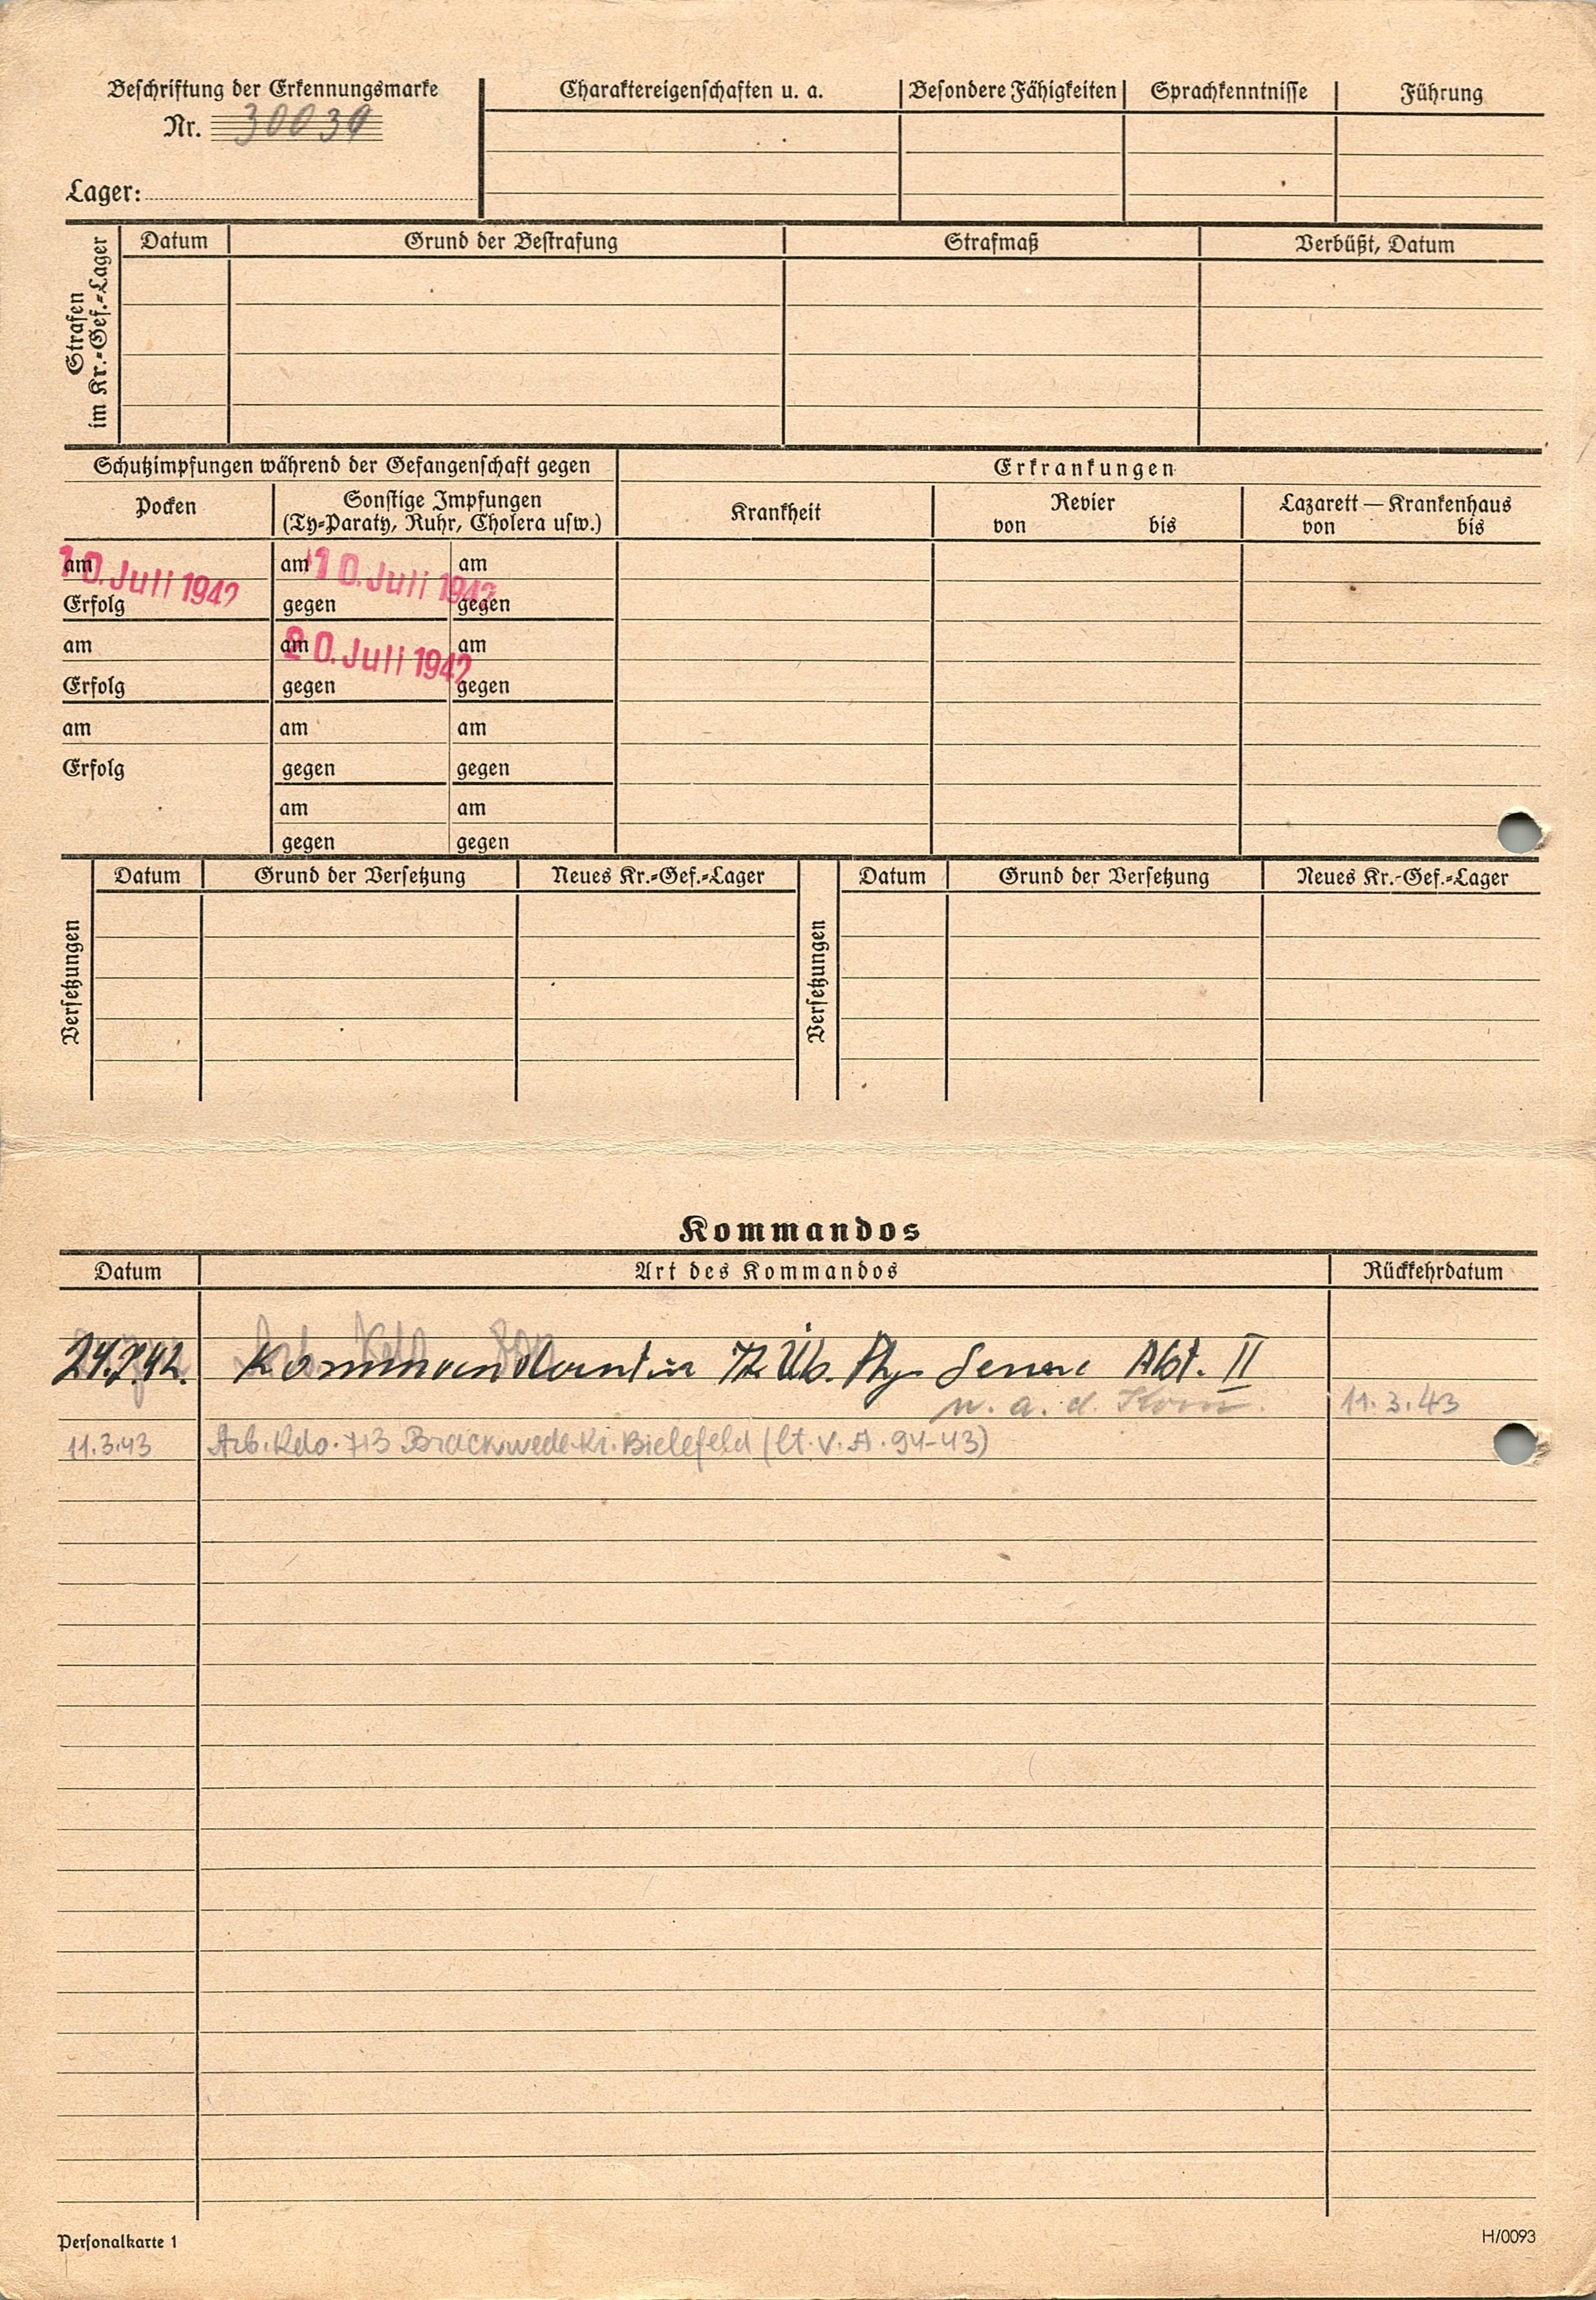 Beschriftung der Erkennungsmarke
Nr. 30039
Lager:
Charaktereigenschaften u. a.
Besondere Fähigkeiten
Sprachkenntnisse
Führung
Strafen
im Kr.-Gef.-Lager
Datum
Grund der Bestrafung
Strafmaß
Verbüßt, Datum
Schutzimpfungen während der Gefangenschaft gegen
Erkrankungen
Pocken
Sonstige Impfungen
(Ty-Paraty, Ruhr, Cholera usw.)
Krankheit
Revier
von bis
Lazarett — Krankenhaus
von bis
am 10. Juli 1942
Erfolg
am 10. Juli 1942 am
gegen gegen
am
Erfolg
am 20. Juli 1942 am
gegen gegen
am
Erfolg
am am
gegen gegen
am am
gegen gegen
Versetzungen
Datum
Grund der Versetzung
Neues Kr.-Gef.-Lager
Versetzungen
Datum
Grund der Versetzung
Neues Kr.-Gef.-Lager
Kommandos
Datum
Art des Kommandos
Rückkehrdatum
24.7.42. Kommandantur Tr. Üb. Pl. Senne Abt. II
w. a. d. Kom. 11.3.43
11.3.43 Arb. Kdo. 713 Brackwede Kr. Bielefeld (lt. V. A. 94-43)
Personalkarte 1
H/0093